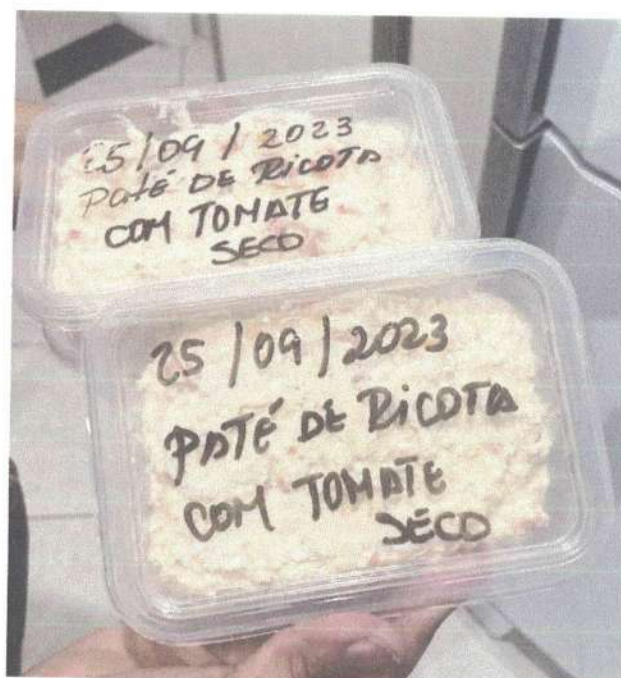 25/09/2023
PATÉ DE RICOTA
COM TOMATE
SECO
25/09/2023
PATÉ DE RICOTA
COM TOMATE
SECO